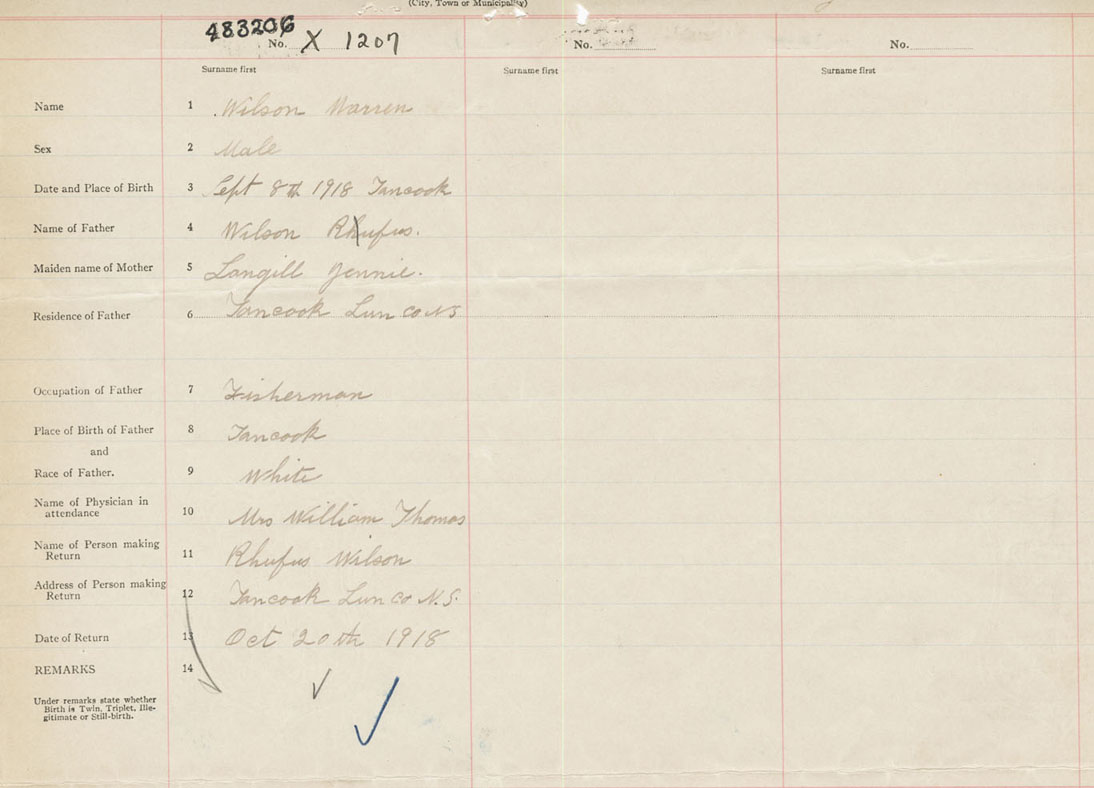 (City, Town or Municipality)
483206
No. X 1207 No. No.
Surname first Surname first Surname first
Name 1 Wilson Warren
Sex 2 Male
Date and Place of Birth 3 Sept 8th 1918 Tancook
Name of Father 4 Wilson Rhufus.
Maiden name of Mother 5 Langill Jennie.
Residence of Father 6 Tancook Lun co NS
Occupation of Father 7 Fisherman
Place of Birth of Father 8 Tancook
and
Race of Father. 9 White
Name of Physician in
attendance 10 Mrs William Thomas
Name of Person making
Return 11 Rhufus Wilson
Address of Person making
Return 12 Tancook Lun co N.S.
Date of Return 13 Oct 20th 1918
REMARKS 14
Under remarks state whether
Birth is Twin, Triplet, Ille-
gitimate or Still-birth.